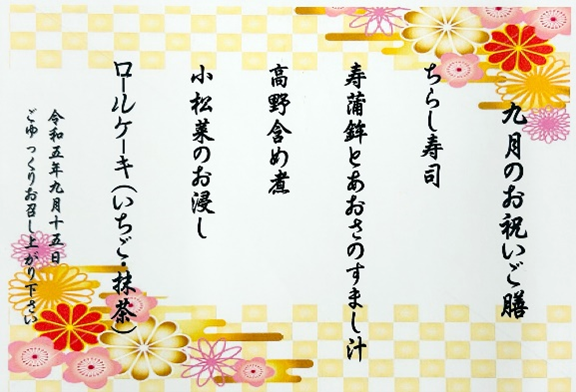 九月のお祝いご膳
ちらし寿司
寿蒲鉾とあおさのすまし汁
高野含め煮
小松菜のお浸し
ロールケーキ(いちご・抹茶)
令和五年九月十五日
ごゆっくりお召し上がり下さい